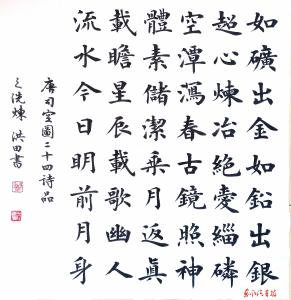 如礦出金如鉛出銀
超心煉冶絕愛緇磷
空潭瀉春古鏡照神
體素儲潔乘月返眞
載瞻星辰載歌幽人
流水今日明前月身
唐司空圖二十四詩品
之洗煉 洪田書